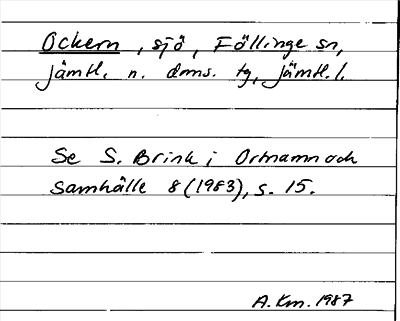 Ockern, sjö, Föllinge sn,
Jämtl. n. doms. tg, Jämtl. l.
Se S. Brink i Ortnamn och
samhälle 8 (1983), s. 15.
A. Km. 1987